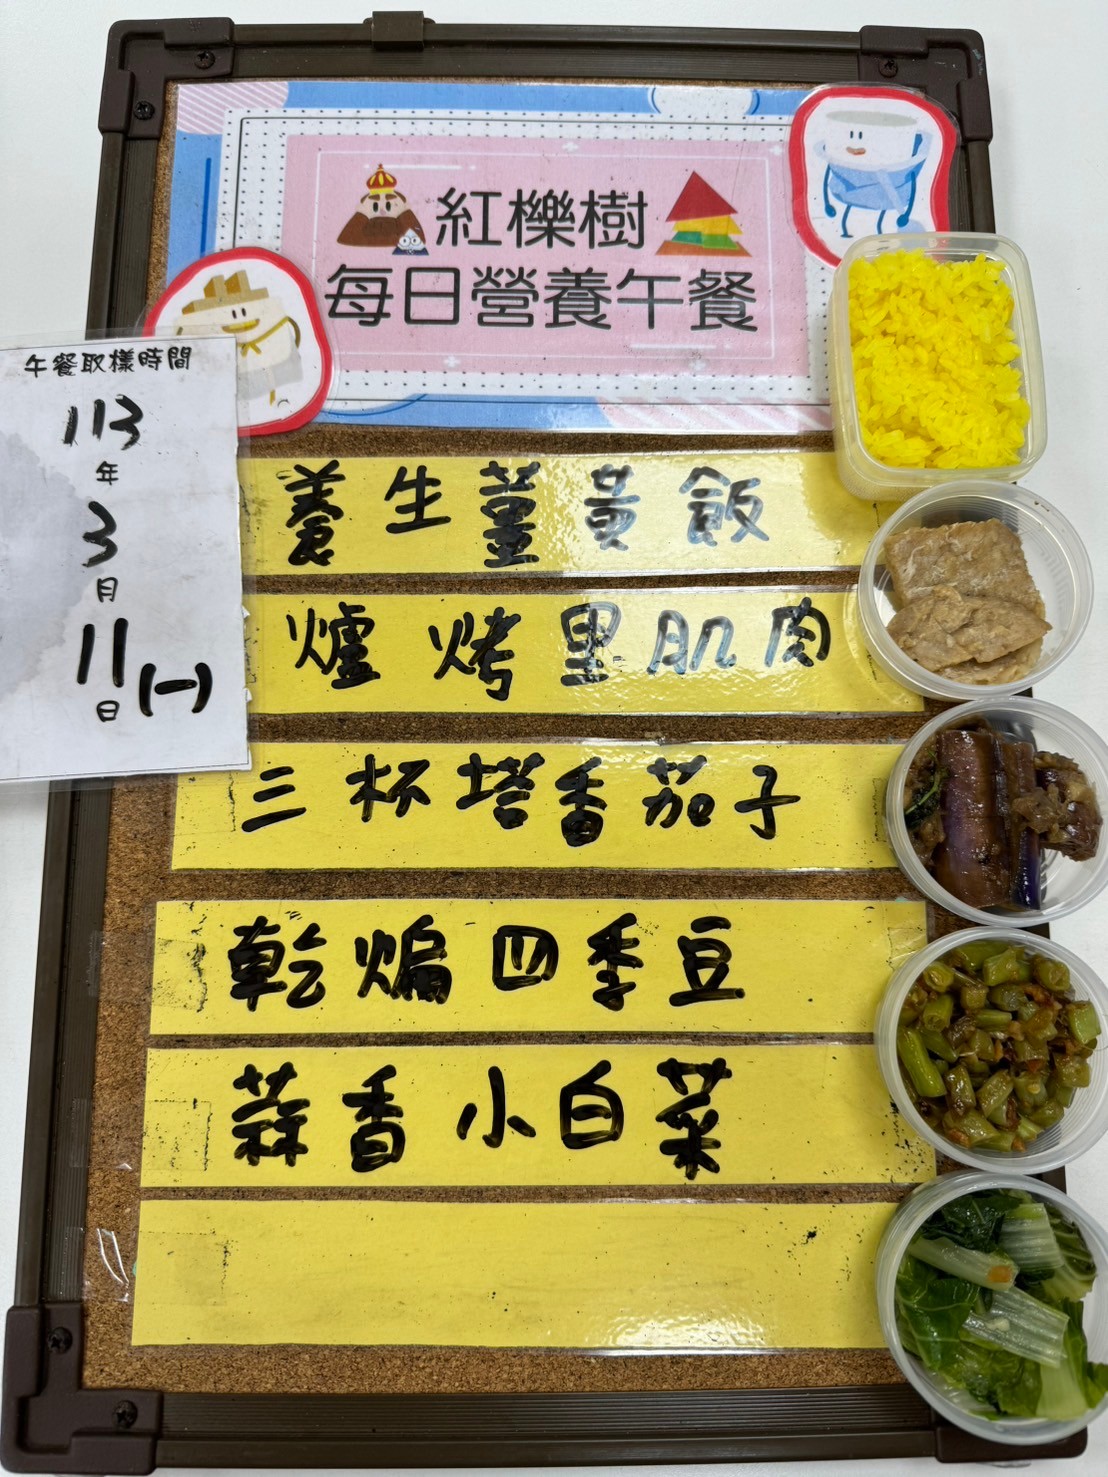 紅櫟樹
每日營養午餐
午餐取樣時間
113
年
3
月
11
日 (一)
養生薑黃飯
爐烤里肌肉
三杯塔香茄子
乾煸四季豆
蒜香小白菜